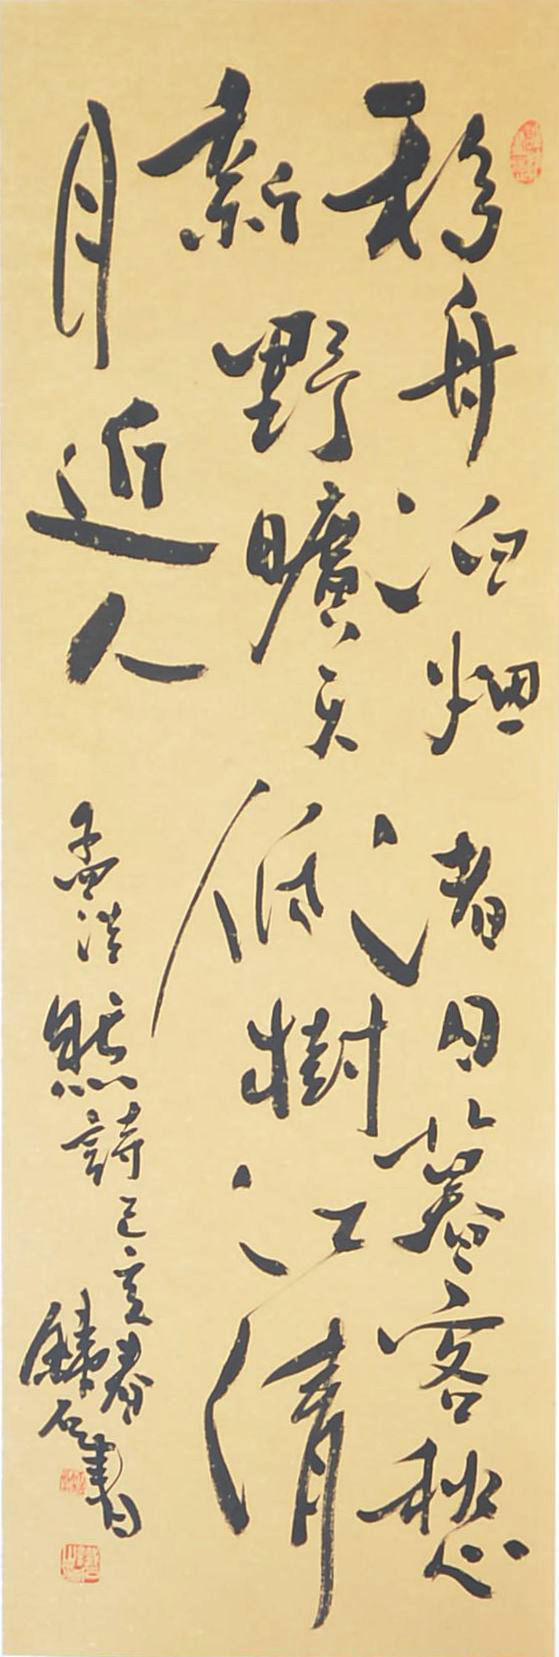 移舟泊烟渚日暮客愁
新野曠天低樹江清
月近人
孟浩然詩己亥春
鐵石書